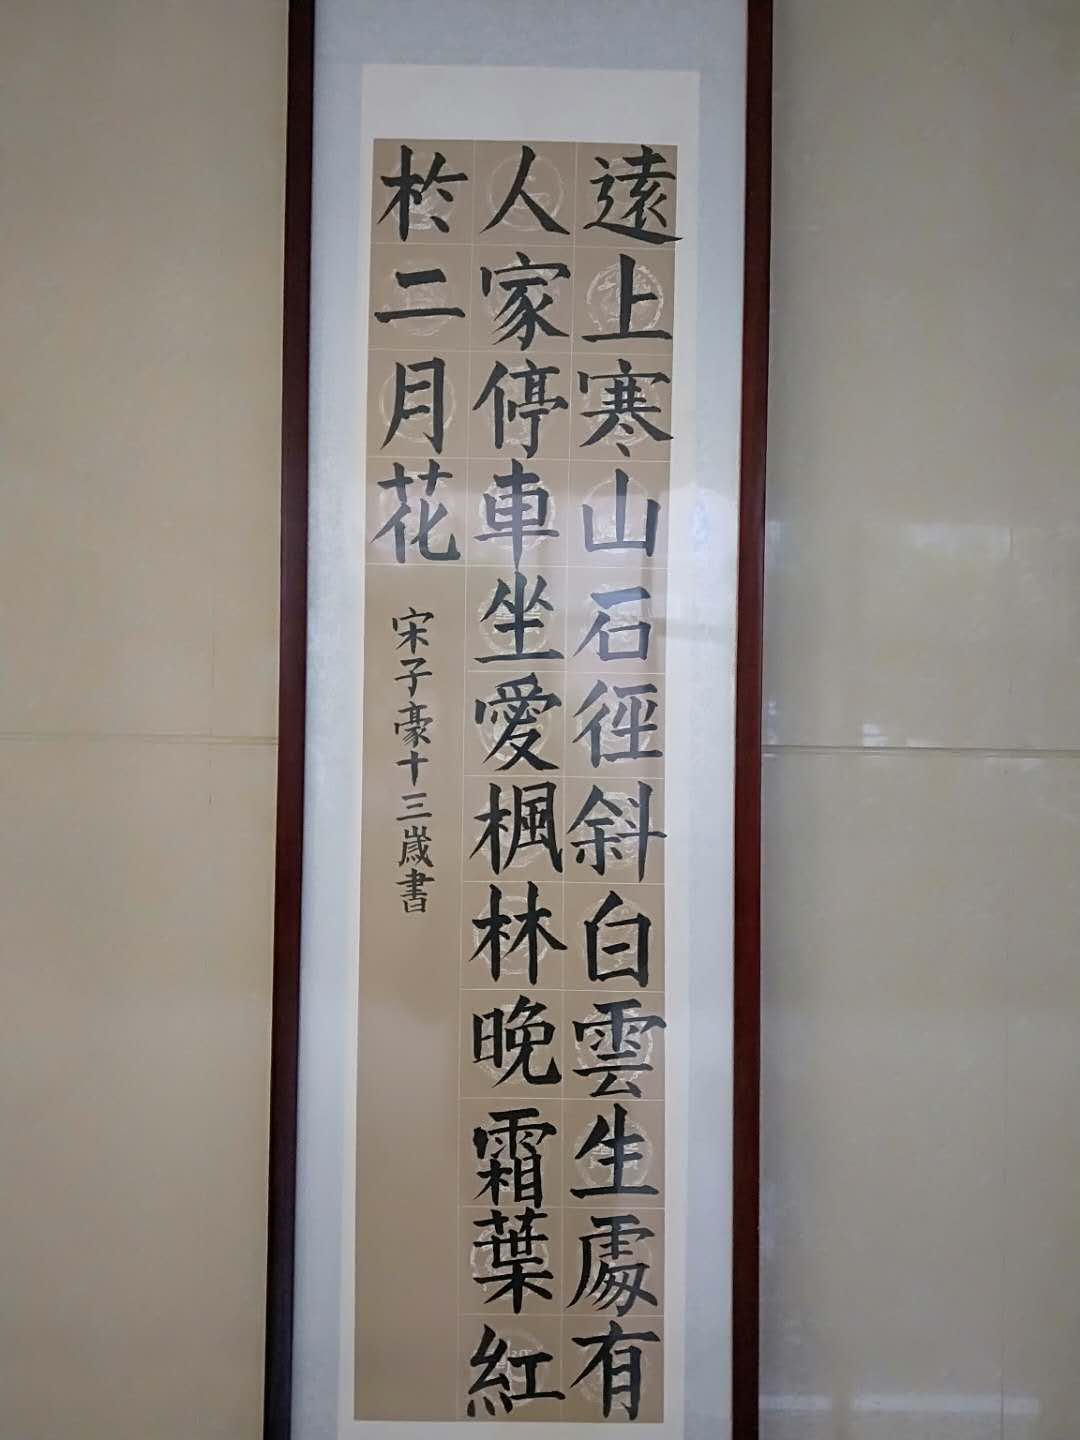 遠上寒山石徑斜白雲生處有
人家停車坐愛楓林晚霜葉紅
於二月花
宋子豪十三歲書